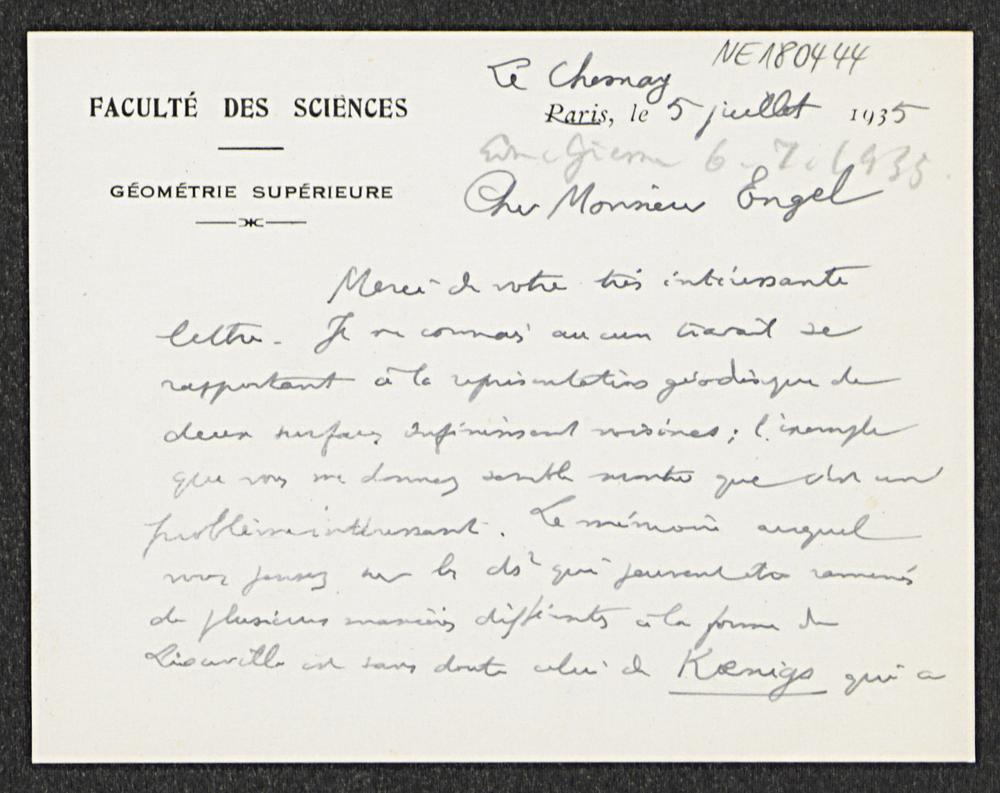 NE180444
Le Chesnay
FACULTÉ DES SCIENCES
Paris, le 5 juillet 1935
6. 7. 1935.
GÉOMÉTRIE SUPÉRIEURE
Cher Monsieur Engel
Merci de votre très intéressante
lettre. Je ne connais aucun travail se
rapportant à la représentation géodésique de
deux surfaces infiniment voisines ; l'exemple
que vous me donnez semble montrer que c'est un
problème intéressant. Le mémoire auquel
vous pensez sur les ds² qui peuvent être ramenés
de plusieurs manières différentes à la forme de
Liouville est sans doute celui de Kœnigs qui a